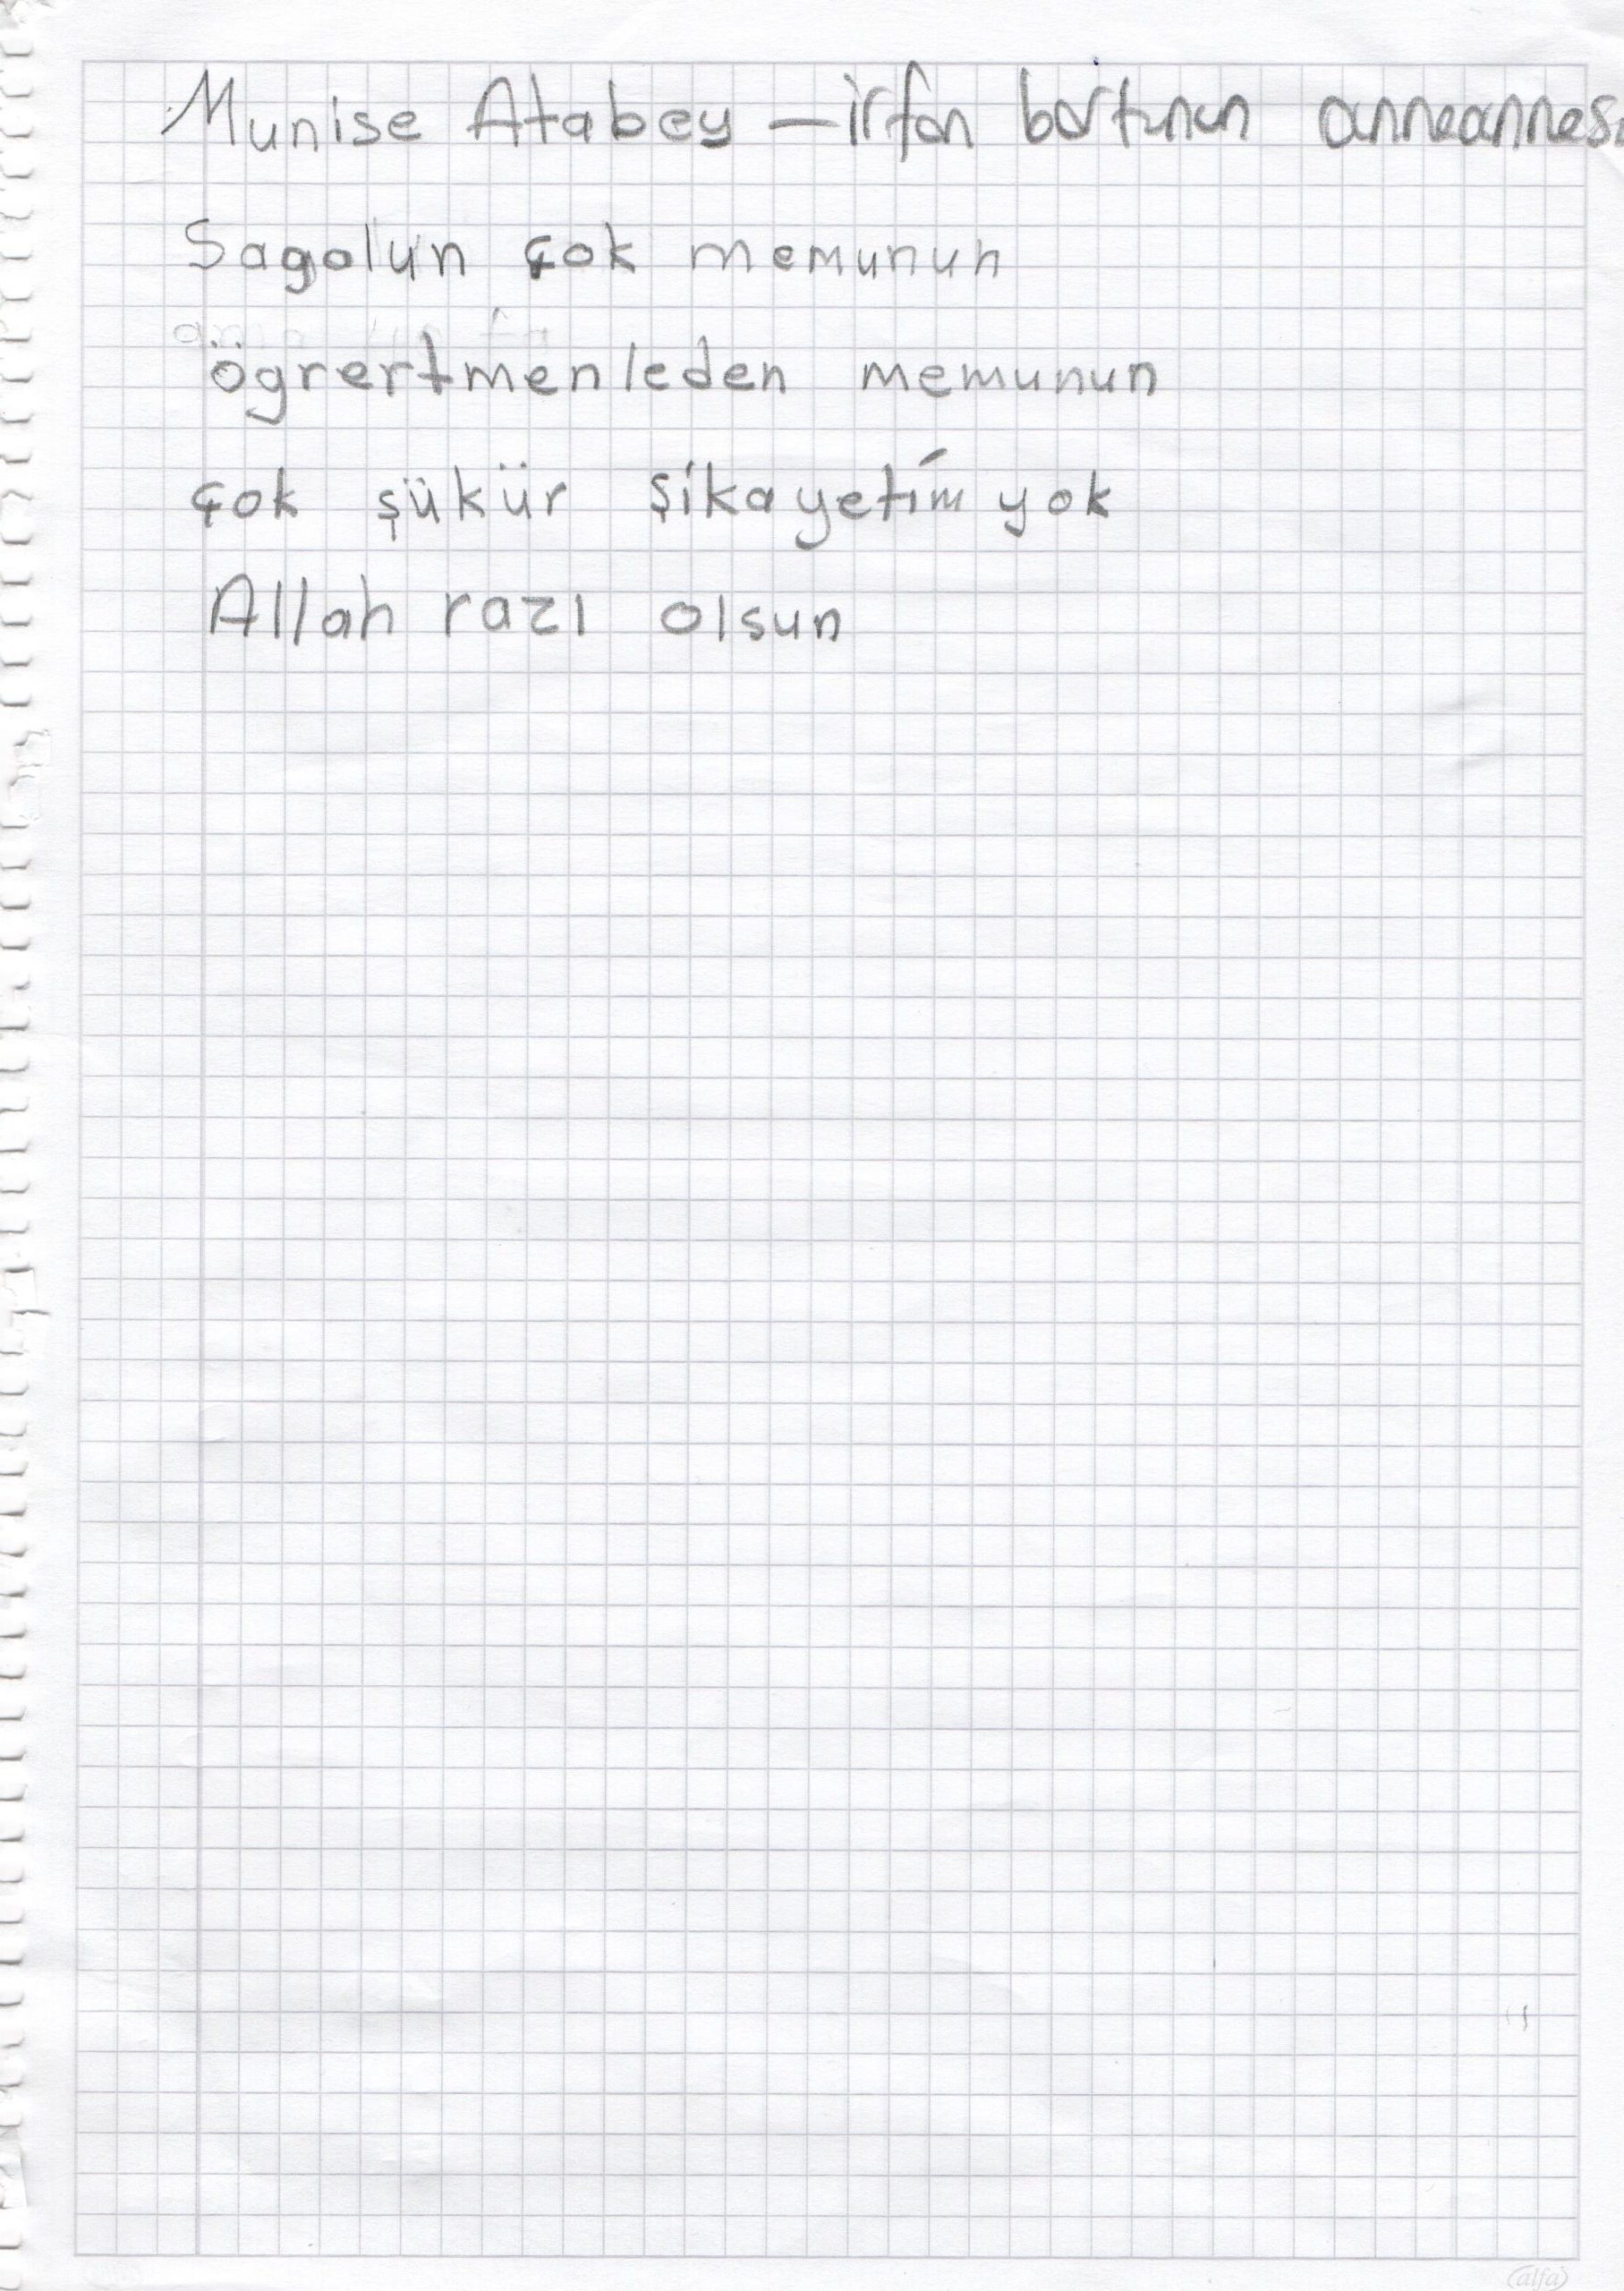 Munise Atabey - irfan bartunun anneannesi
Sagolun çok memunun
ögrertmenleden memunun
çok şükür şikayetim yok
Allah razı olsun
alfa